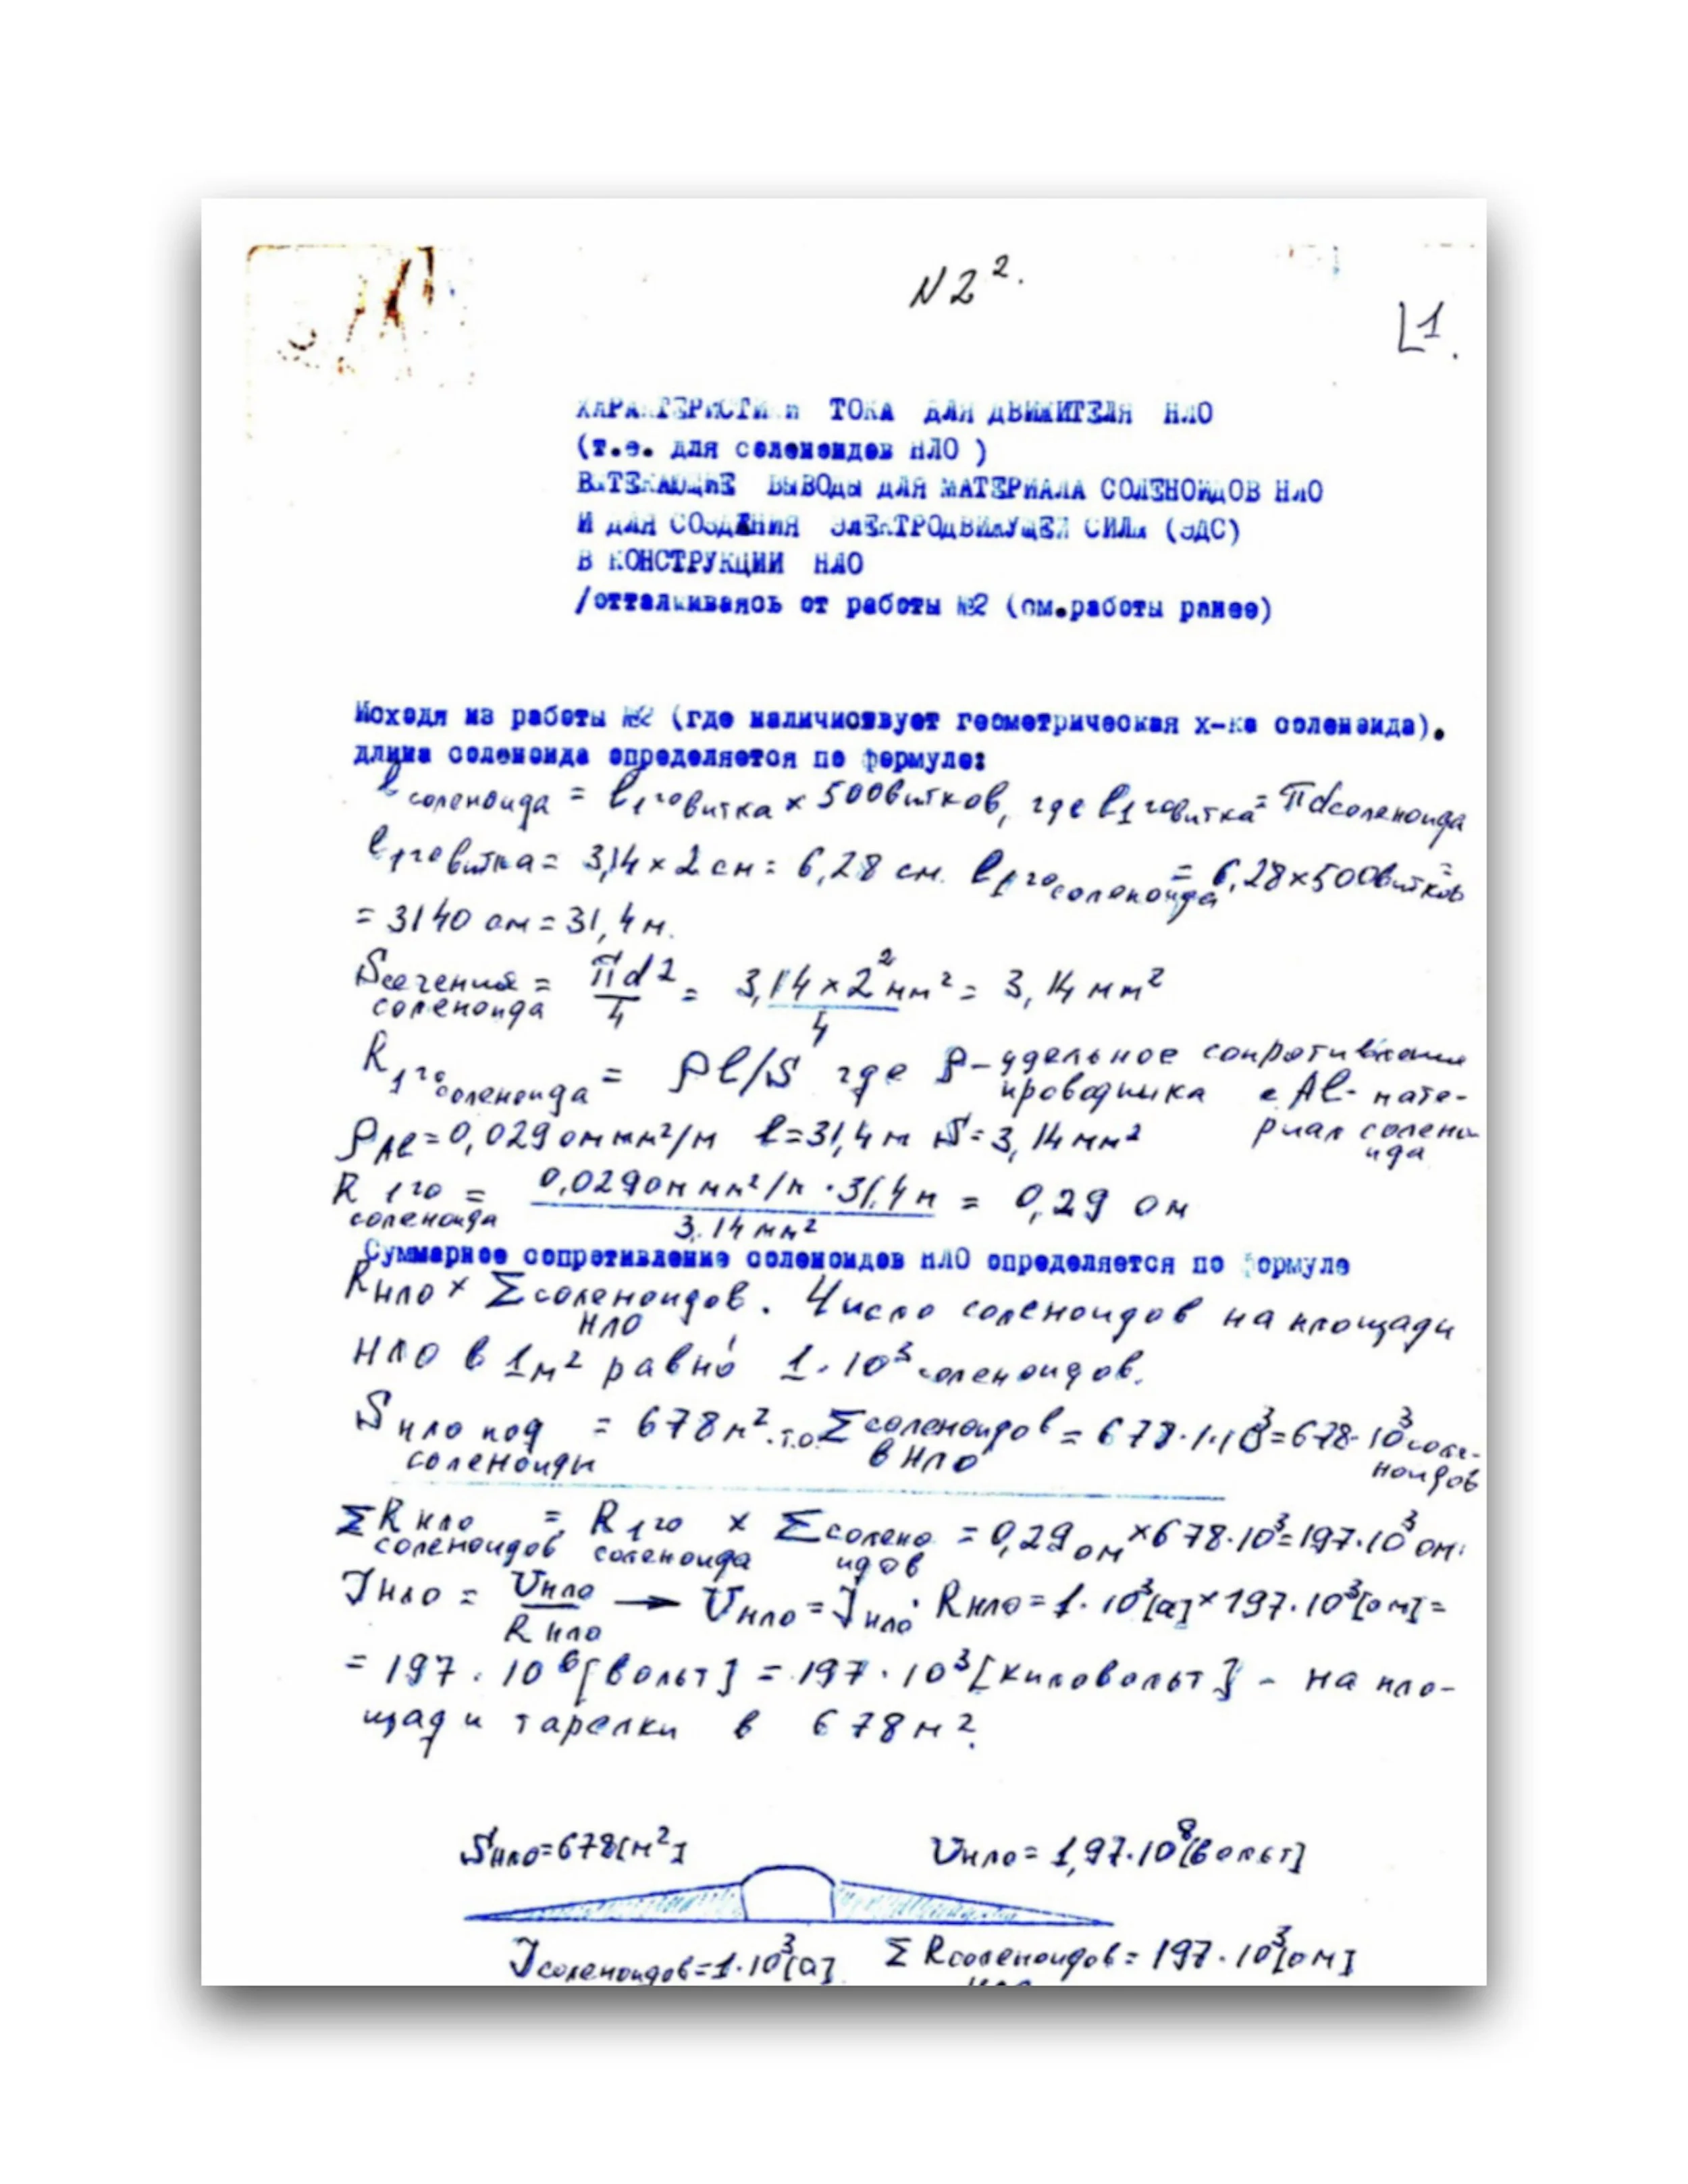 N2².
1.
ХАРАКТЕРИСТИКИ ТОКА ДЛЯ ДВИЖИТЕЛЯ НЛО
(т.е. для соленоидов НЛО )
ВЫТЕКАЮЩИЕ ВЫВОДЫ ДЛЯ МАТЕРИАЛА СОЛЕНОИДОВ НЛО
И ДЛЯ СОЗДАНИЯ ЭЛЕКТРОДВИЖУЩЕЙ СИЛЫ (ЭДС)
В КОНСТРУКЦИИ НЛО
/отталкиваясь от работы №2 (см.работы ранее)
Исходя из работы №2 (где наличиствует геометрическая х-ка соленоида).
длина соленоида определяется по формуле:
ℓ соленоида = ℓ 1го витка × 500 витков, где ℓ 1го витка = πd соленоида
ℓ 1го витка = 3,14 × 2 см = 6,28 см. ℓ 1го соленоида = 6,28 × 500 витков =
= 3140 см = 31,4 м.
S сечения соленоида = πd2/4 = 3,14 × 2² мм²/4 = 3,14 мм²
R 1го соленоида = ρℓ/S где ρ - удельное сопротивление
проводника с Al - мате-
ρ Al = 0,029 ом мм²/м ℓ = 31,4 м S = 3,14 мм² риал солено
ида
R 1го соленоида = 0,029 ом мм²/м · 31,4 м / 3,14 мм² = 0,29 ом
Суммарное сопротивление соленоидов НЛО определяется по формуле
R нло × Σ соленоидов НЛО. Число соленоидов на площади
НЛО в 1 м² равно 1·10³ соленоидов.
S нло под соленоиды = 678 м². т.о. Σ соленоидов в НЛО = 678·1·10³ = 678·10³ соле-
ноидов
Σ R нло соленоидов = R 1го соленоида × Σ соленоидов = 0,29 ом × 678·10³ = 197·10³ ом.
J нло = U нло / R нло → U нло = J нло · R нло = 1·10³ [а] × 197·10³ [ом] =
= 197·10⁶ [вольт] = 197·10³ [киловольт] - на пло-
щади тарелки в 678 м².
S нло = 678 [м²] U нло = 1,97·10⁸ [вольт]
J соленоидов = 1·10³ [а] Σ R соленоидов = 197·10³ [ом]